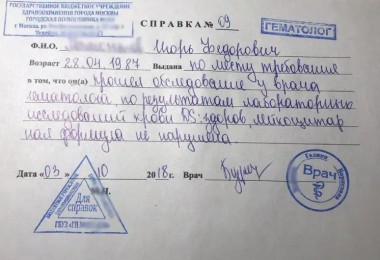 ГОСУДАРСТВЕННОЕ БЮДЖЕТНОЕ УЧРЕЖДЕНИЕ
ЗДРАВООХРАНЕНИЯ ГОРОДА МОСКВЫ
ГОРОДСКАЯ ПОЛИКЛИНИКА
СПРАВКА № 09
ГЕМАТОЛОГ
Ф.И.О. Игорь Федорович
Возраст 28.04.1987 Выдана по месту требования
в том, что он(а) прошел обследование у врача
гематолога по результатам лабораторных
исследований крови DS: здоров, лейкоцитар
ная формула не нарушена.
Дата «03» 10 2018г. Врач
М.П.
Для
справок
Врач